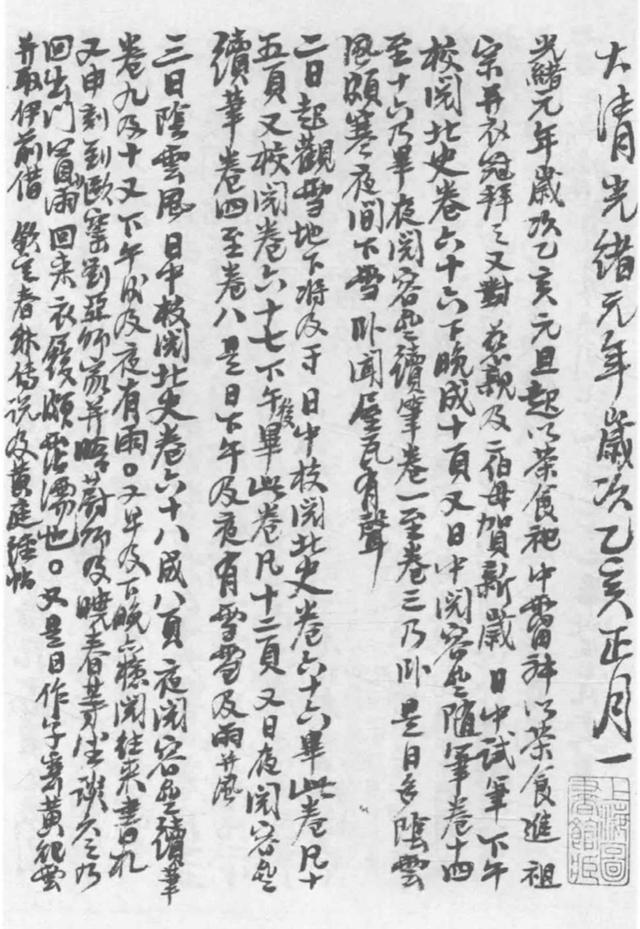 大清光緒元年歲次乙亥正月一
光緒元年歲次乙亥元旦起以茶食祀中霤神以茶食進 祖
宗并衣冠拜之又對 慈親及二伯母賀新歲 日中試筆 下午
校閱北史卷六十六下晚成十頁又日中閱容齋隨筆卷十四
至十六乃畢夜閱容齋續筆卷一至卷三乃卧 是日多陰雲
風頗寒夜間下雪 卧聞屋瓦有聲
二日起觀雪地下將及寸 日中校閱北史卷六十六畢此卷凡十
五頁又校閱卷六十七下午後畢此卷凡十二頁 又日夜閱容齋
續筆卷四至卷八 是日下午及夜有雪雪及雨并風
三日陰雲風 日中校閱北史卷六十八成八頁 夜閱容齋續筆
卷九及十 又下午及夜有雨。又早及下晚亦檢閱往來書札
又申刻到歐窰劉亞師家并晤蔚師及曉春等坐談久之乃
回出門冒雨回來衣履頗霑濡也。又是日作字寄黃
并取伊前借 欽定春秋傳說及黃庭經帖
上海圖書館藏